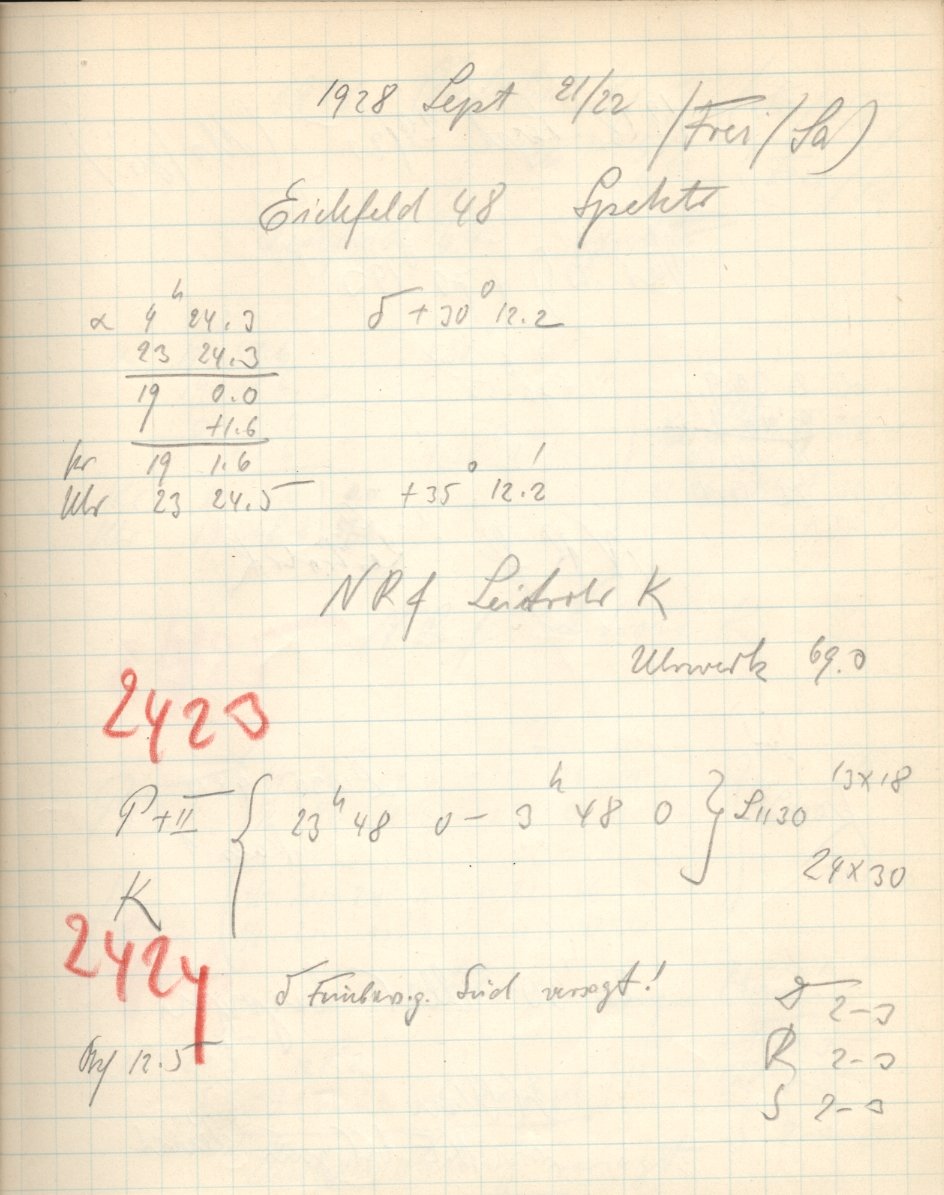 1928 Sept 21/22 (Frei/Sa)
Eichfeld 48 Spektr
α 4h 24.3 δ +30° 12.2
23 24.3
19 0.0
+1.6
kr 19 1.6
Uhr 23 24.5 +35° 12.2'
NRf Leitrohr K
Uhrwerk 69.0
2423
P+II { 23h 48 0 – 3h 48 0 } 13x18
K 24x30
2424
δ Süd versagt!
D 2-3
12.5 R 2-3
S 2-3